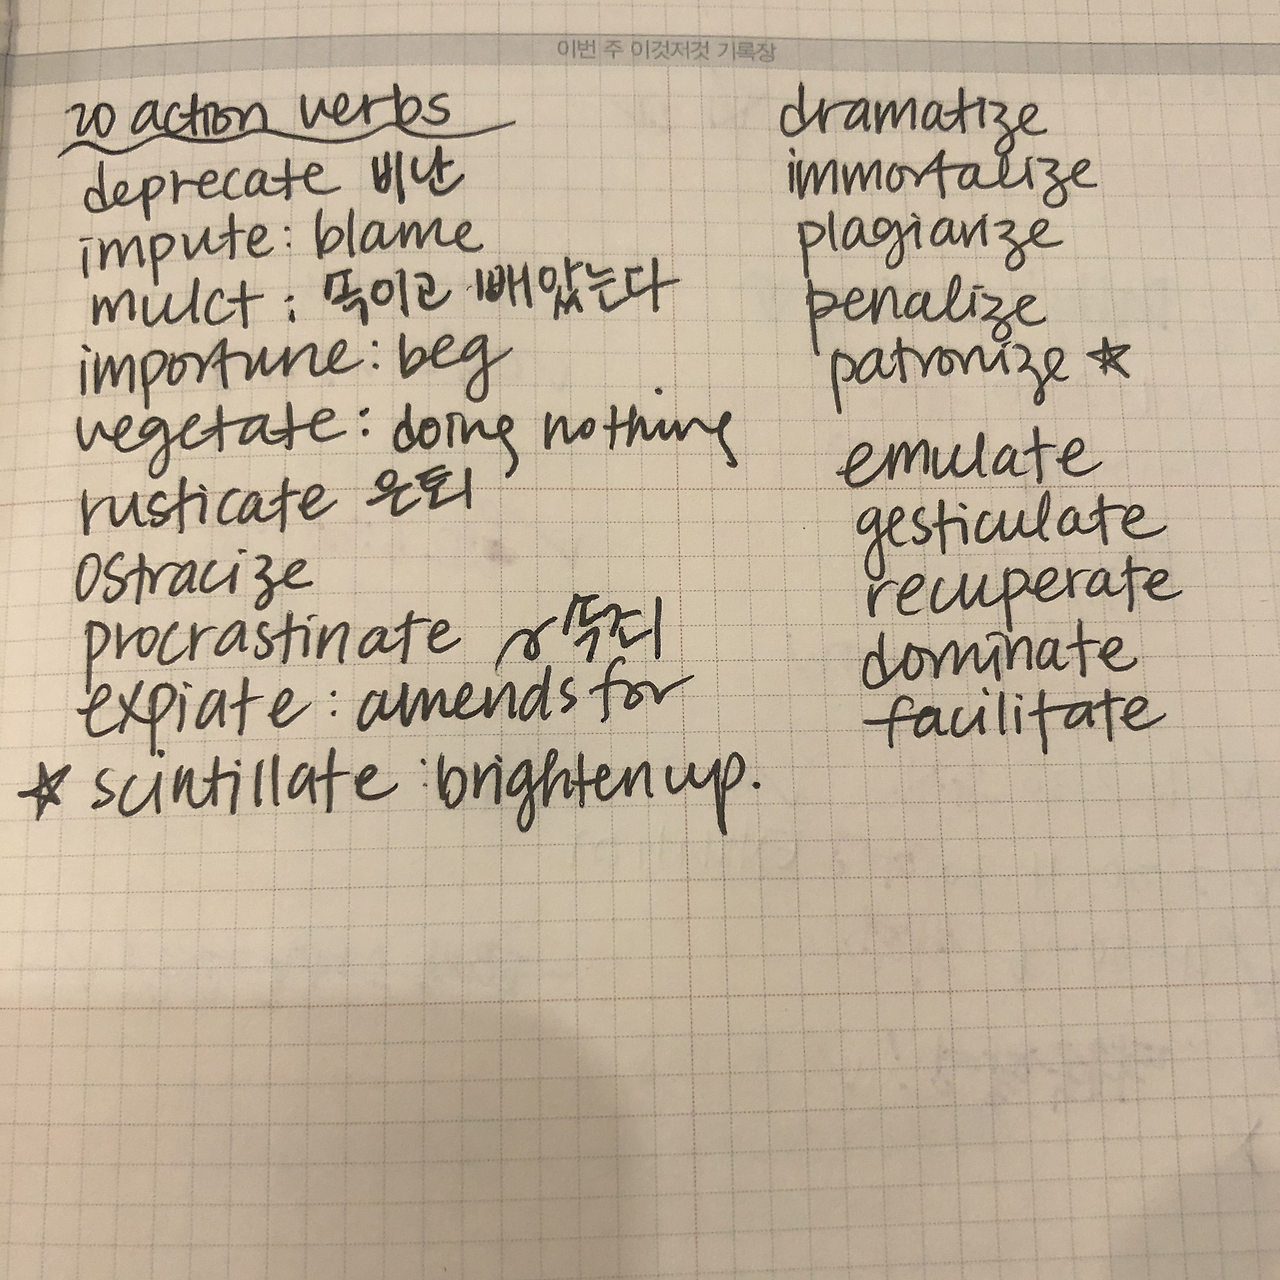 이번 주 이것저것 기록장
20 action verbs
deprecate 비난
impute: blame
mulct : 뜩이고 빼앖는다
importune: beg
vegetate: doing nothing
rusticate 은퇴
ostracize
procrastinate
expiate : amends for
☆ scintillate : brighten up.
dramatize
immortalize
plagiarize
penalize
patronize ☆
emulate
gesticulate
recuperate
dominate
facilitate